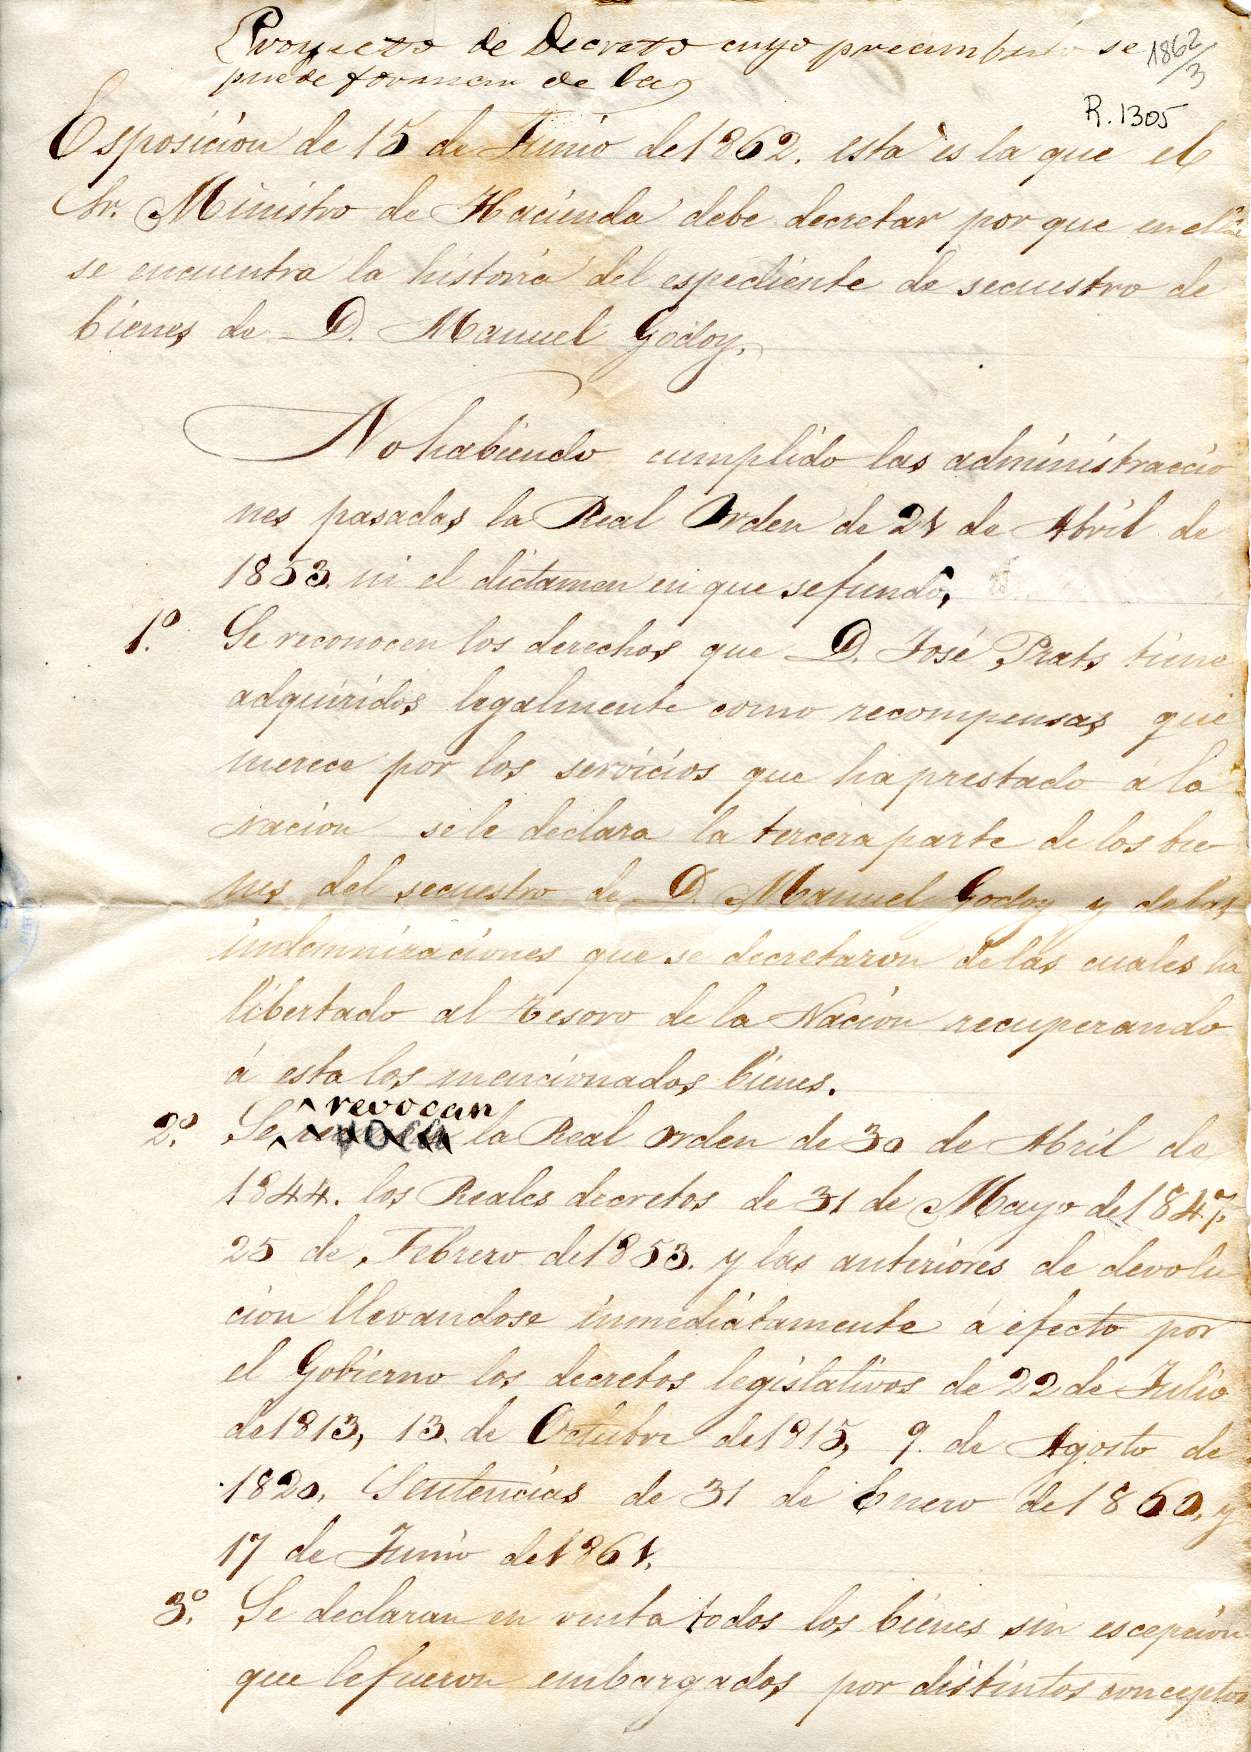 Proyecto de Decreto cuyo preambulo se
puede formar de la
1862/3
R. 1305
Esposicion de 15 de Junio de 1862. esta es la que el
Sr. Ministro de Hacienda debe decretar por que en ella
se encuentra la historia del espediente de secuestro de
bienes de D. Manuel Godoy.
No habiendo cumplido las administraccio
nes pasadas la Real Orden de 21 de Abril de
1853. ni el dictamen en que se fundó,
1º. Se reconocen los derechos que D. José Prats tiene
adquiridos legalmente como recompensas que
merece por los servicios que ha prestado á la
Nacion se le declara la tercera parte de los bie
nes del secuestro de D. Manuel Godoy y de las
indemnizaciones que se decretaron de las cuales ha
libertado al Tesoro de la Nacion recuperando
á esta los mencionados bienes.
revocan
2º. Se la Real orden de 30 de Abril de
1844. los Reales decretos de 31 de Mayo de 1847.
25 de Febrero de 1853. y las anteriores de devolu
cion llevandose inmediatamente á efecto por
el Gobierno los decretos legislativos de 22 de Julio
de 1813, 13. de Octubre de 1815, 9. de Agosto de
1820, Sentencias de 31 de Enero de 1860, y
17 de Junio de 1861.
3º. Se declaran en venta todos los bienes sin escepcion
que le fueron embargados por distintos conceptos